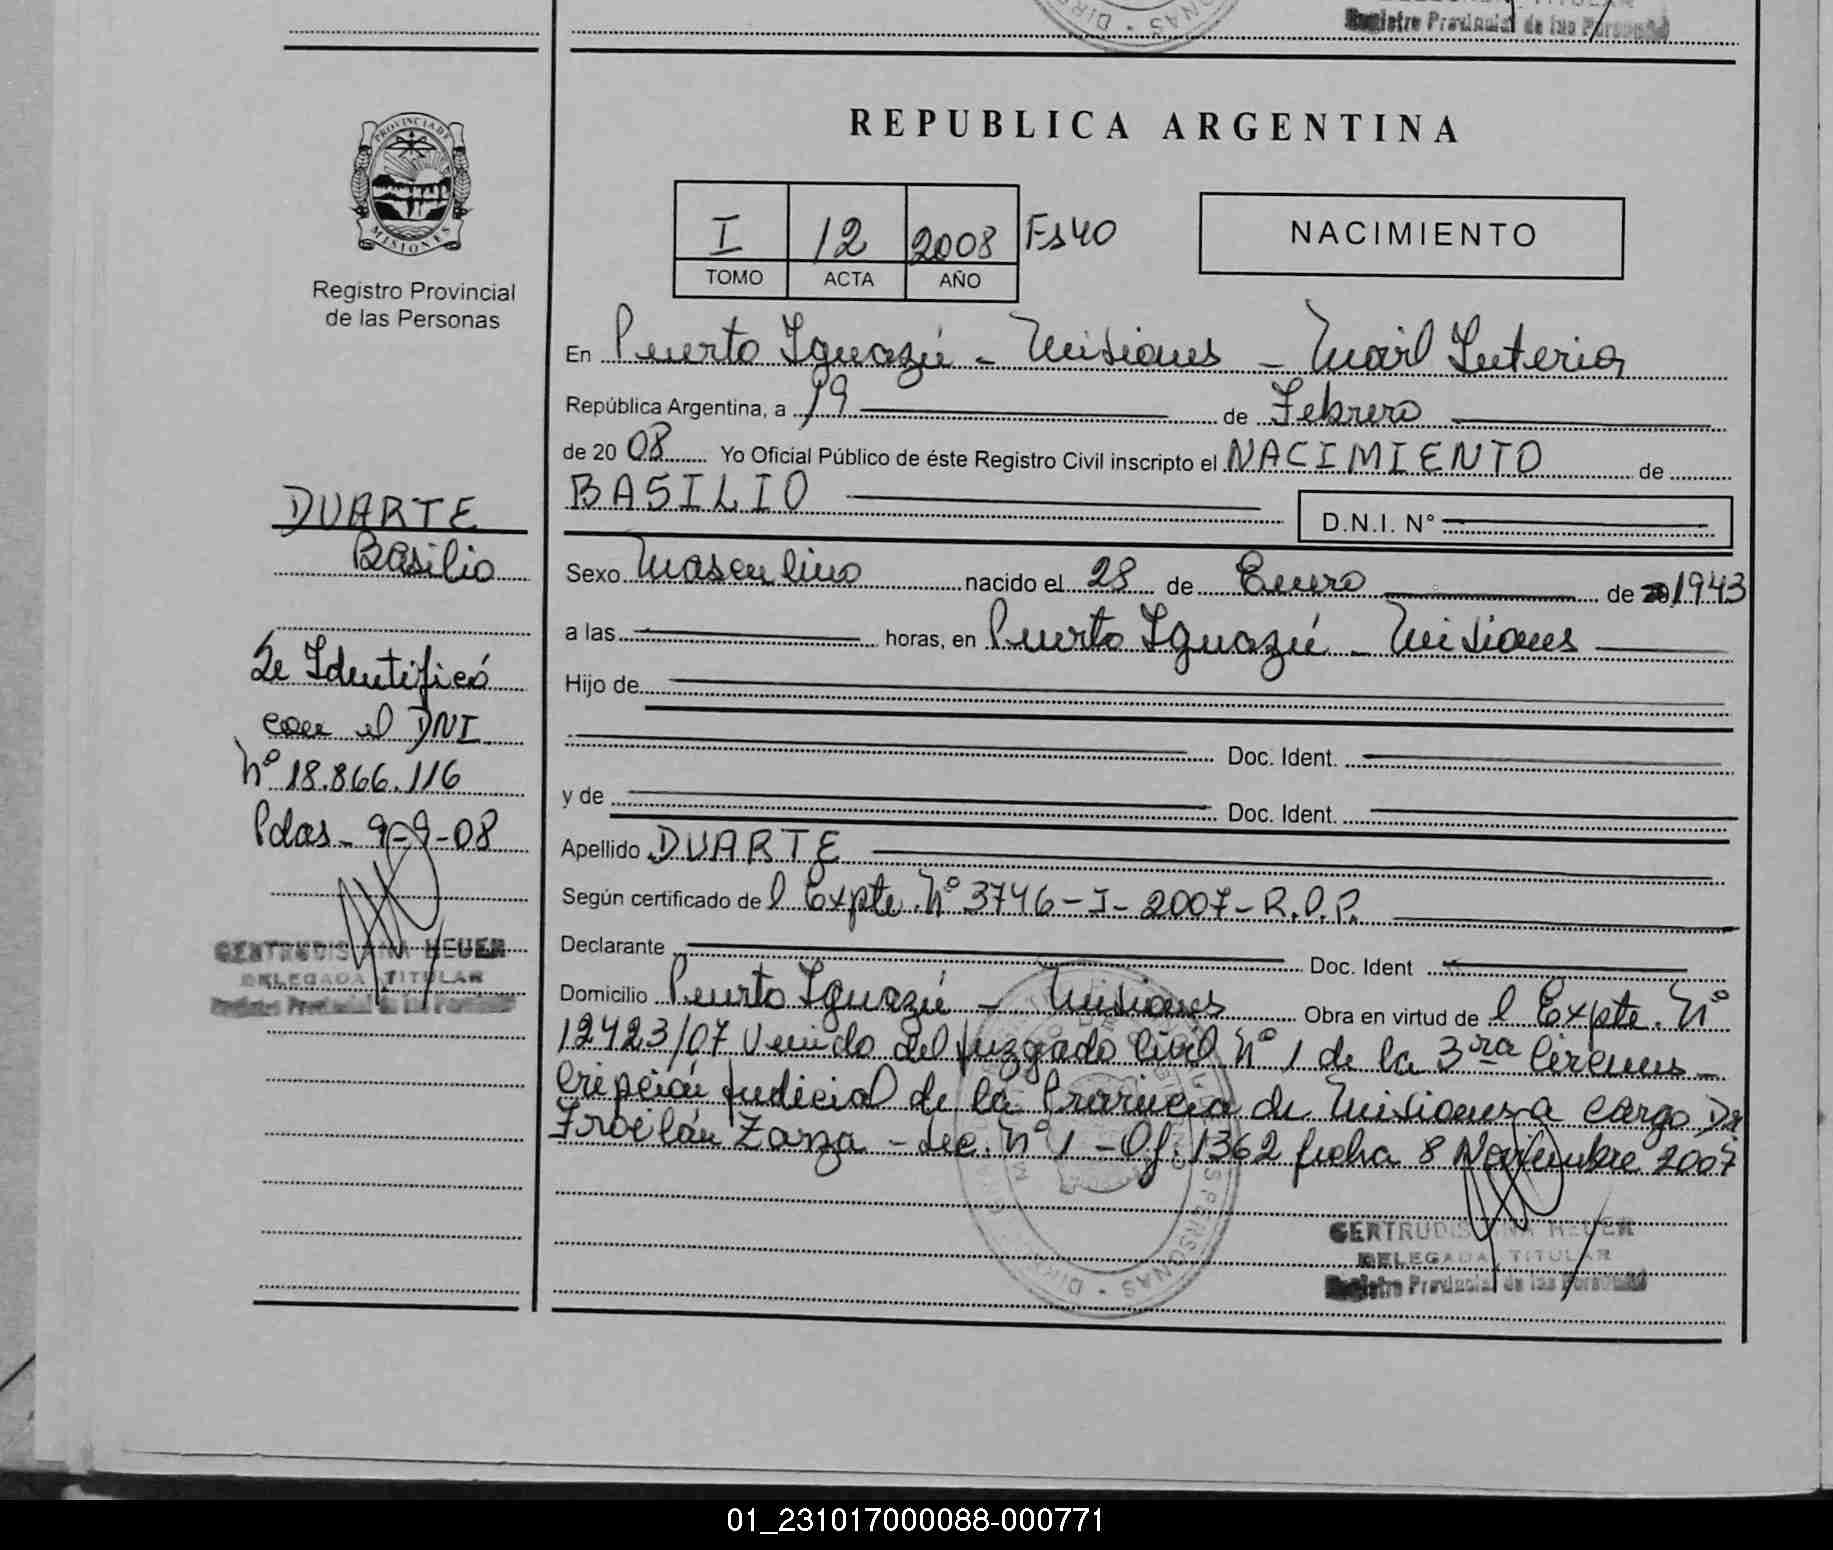 Registro Provincial de las Personas
REPUBLICA ARGENTINA
PROVINCIA DE
MISIONES
Registro Provincial
de las Personas
I 12 2008 Fs 40
TOMO ACTA AÑO
NACIMIENTO
En Puerto Iguazú - Misiones -
República Argentina, a 19 de Febrero
de 20 08 Yo Oficial Público de éste Registro Civil inscripto el NACIMIENTO de
BASILIO D.N.I. N°
Sexo Masculino nacido el 28 de Enero de 20 1943
a las horas, en Puerto Iguazú - Misiones
Hijo de
Doc. Ident.
y de Doc. Ident.
Apellido DUARTE
Según certificado de l Expte. N° 3746-I-2007-R.P.P.
Declarante Doc. Ident
Domicilio Puerto Iguazú - Misiones Obra en virtud de l Expte. N°
12423/07 Venido del Juzgado Civil N° 1 de la 3ra Circuns-
cripción Judicial de la Provincia de Misiones a cargo Dr
Froilán Zarza - Sec. N° 1 - Of. 1362 fecha 8 Noviembre 2007
GERTRUDIS ANA HEUER
DELEGADA TITULAR
Registro Provincial de las Personas
DUARTE
Basilio
Se Identificó
con el DNI
N° 18.866.116
Pdas - 9-9-08
GERTRUDIS ANA HEUER
DELEGADA TITULAR
Registro Provincial de las Personas
01_231017000088-000771